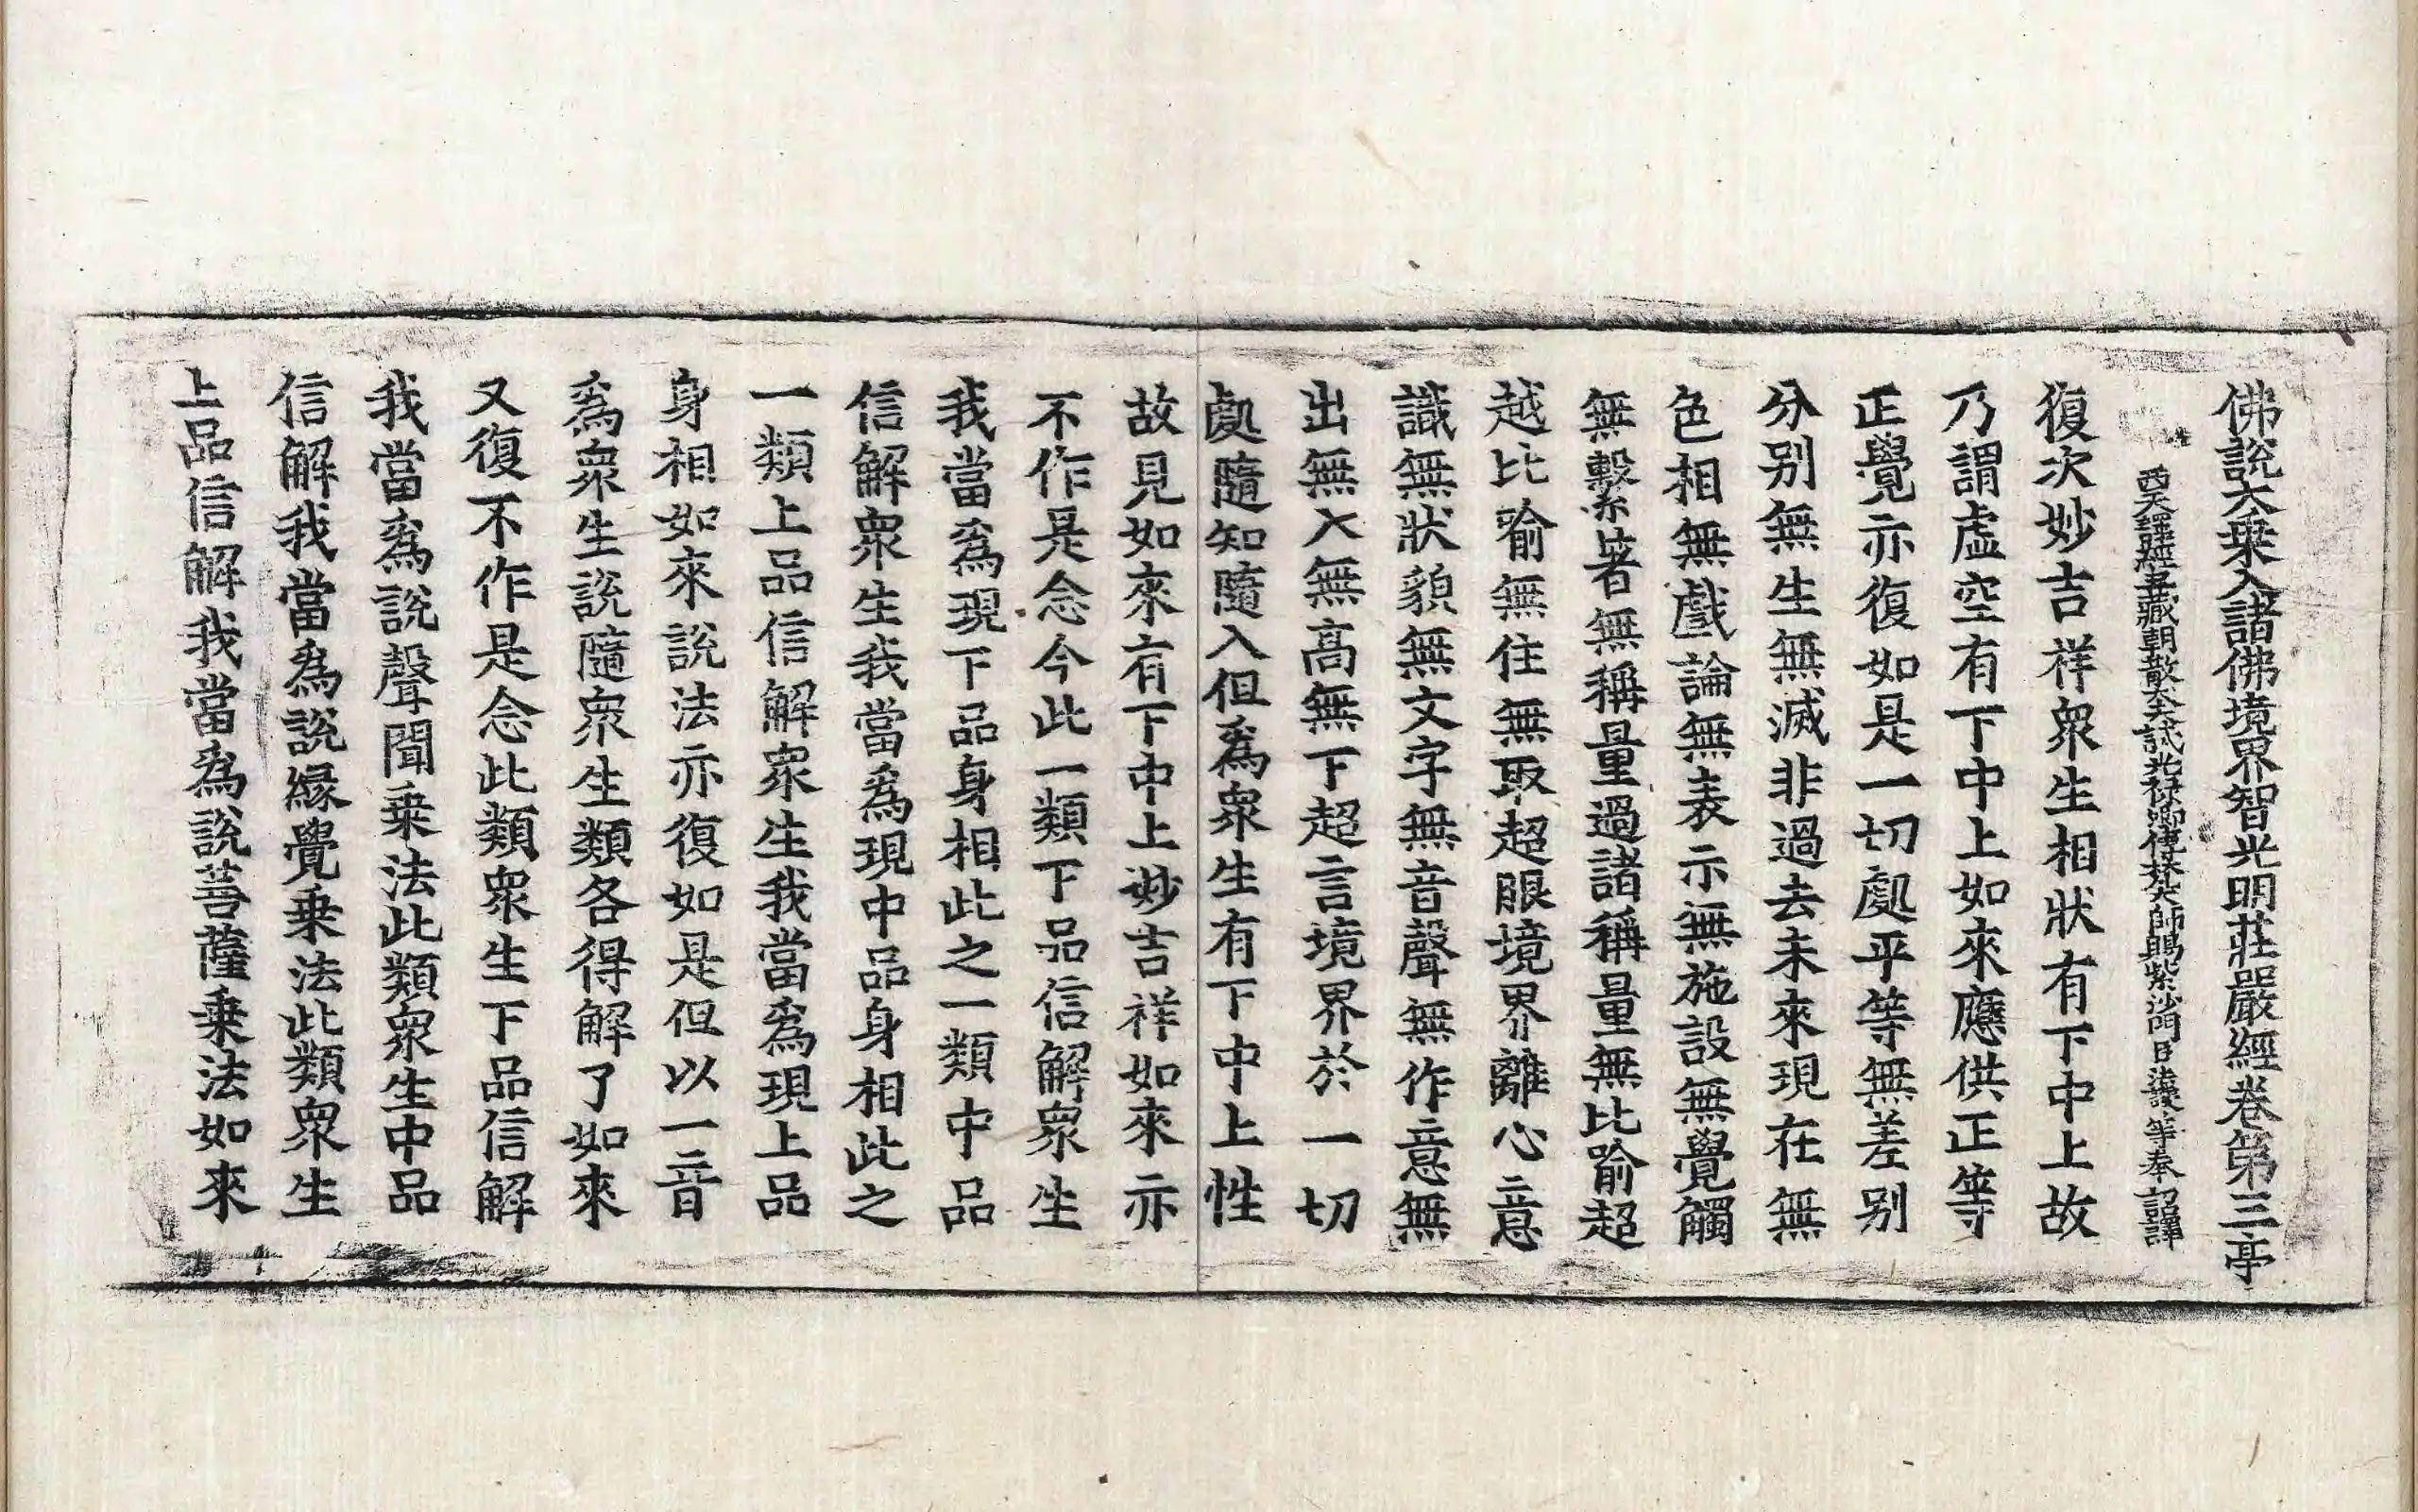 佛說大乗入諸佛境界智光明莊嚴經卷第三亭
西天譯經三藏朝散大夫試光禄卿傳梵大師賜紫沙門臣法護等奉詔譯
復次妙吉祥衆生相狀有下中上故
乃謂虛空有下中上如來應供正等
正覺亦復如是一切處平等無差别
分别無生無滅非過去未來現在無
色相無戲論無表示無施設無覺觸
無繫著無稱量過諸稱量無比喻超
越比喻無住無取超眼境界離心意
識無狀貌無文字無音聲無作意無
出無入無高無下超言境界於一切
處隨知隨入但爲衆生有下中上性
故見如來有下中上妙吉祥如來亦
不作是念今此一類下品信解衆生
我當爲現下品身相此之一類中品
信解衆生我當爲現中品身相此之
一類上品信解衆生我當爲現上品
身相如來說法亦復如是但以一音
爲衆生說隨衆生類各得解了如來
又復不作是念此類衆生下品信解
我當爲說聲聞乗法此類衆生中品
信解我當爲說緣覺乗法此類衆生
上品信解我當爲說菩薩乗法如來